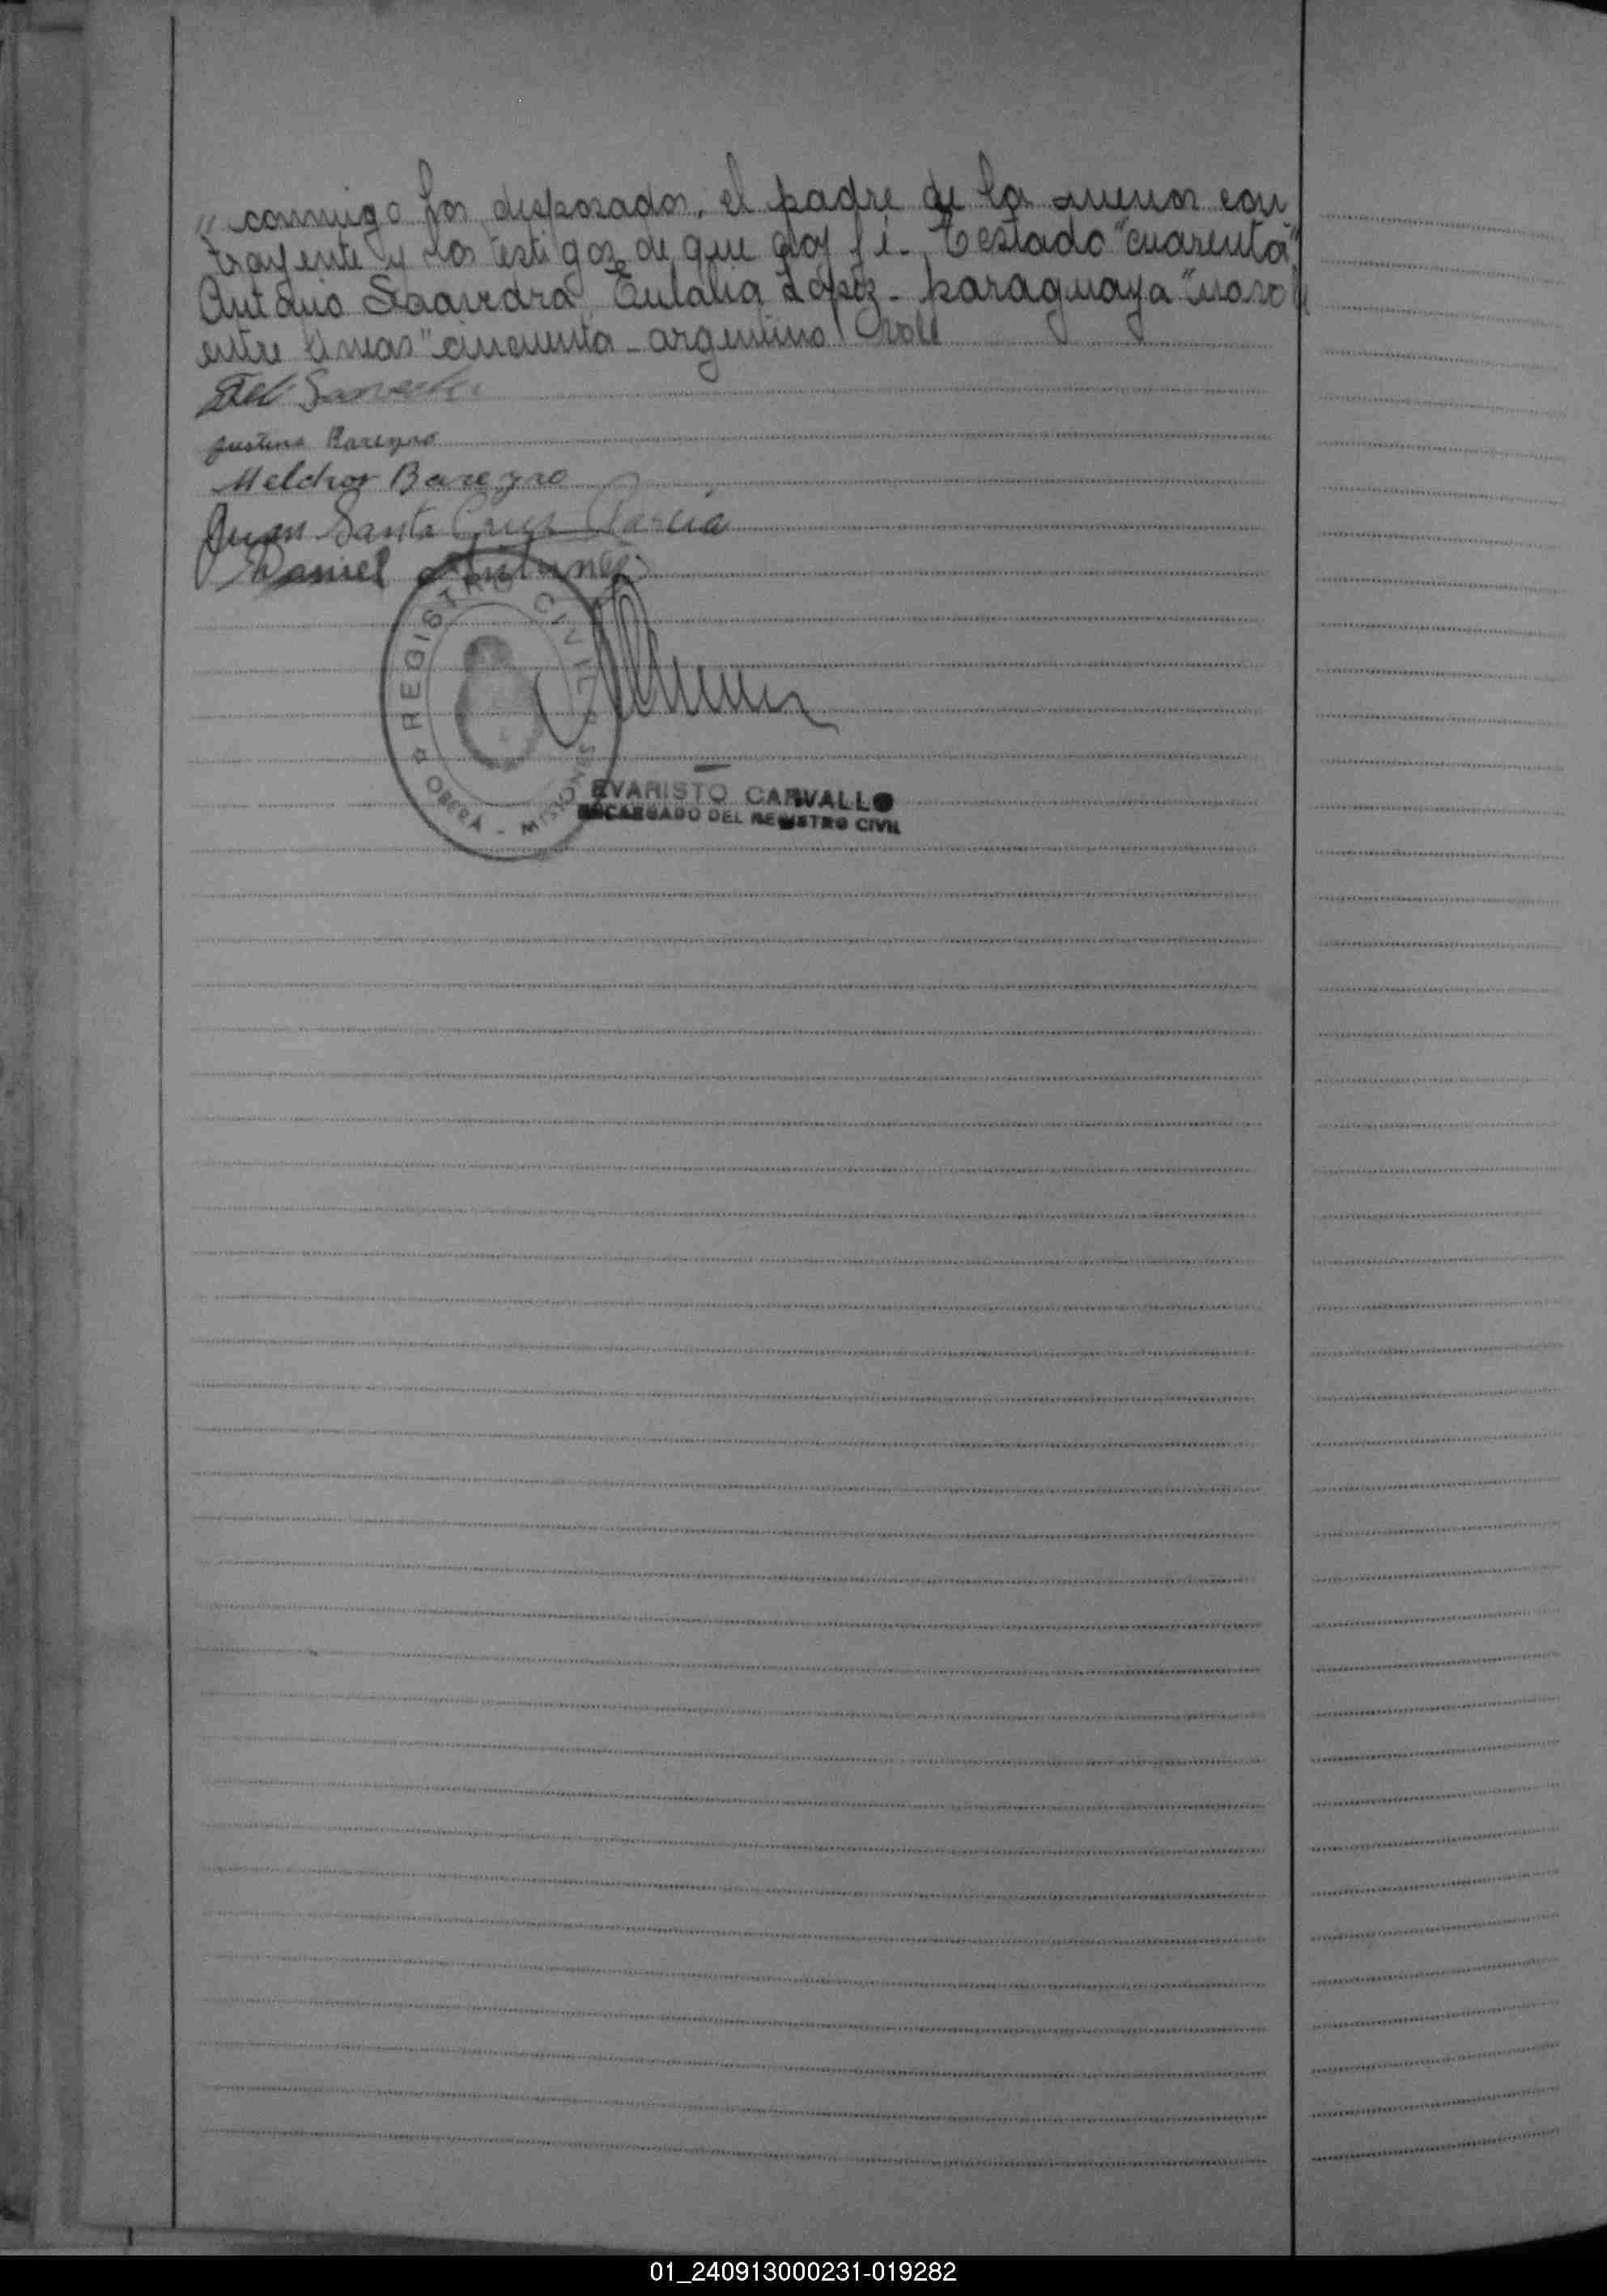 " conmigo los desposados, el padre de la menor con
trayente y los testigos de que doy fé.- Testado "cuarenta"
Antonio Saavedra Eulalia López - paraguaya "no vale
entre lineas "cincuenta - argentino" Vale
Justina Bareyro
Melchor Bareyro
Juan Santa Cruz Garcia
Daniel Antunez
REGISTRO CIVIL
OBERÁ - MISIONES
EVARISTO CARVALLO
ENCARGADO DEL REGISTRO CIVIL
01_240913000231-019282